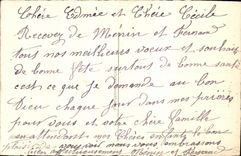 Chère Edmée et Chère Cécile
Recevez de Moniin et Fernand
tous nos meilleurs voeux et souhaits
de bonne fête surtout de bonne santé
c'est ce que je demande au bon
Dieu chaque jour dans mes prières
pour vous et votre chère famille
en attendant mes Chères enfants le bon
plaisir de vous voir nous vous embrassons
bien affectueusement